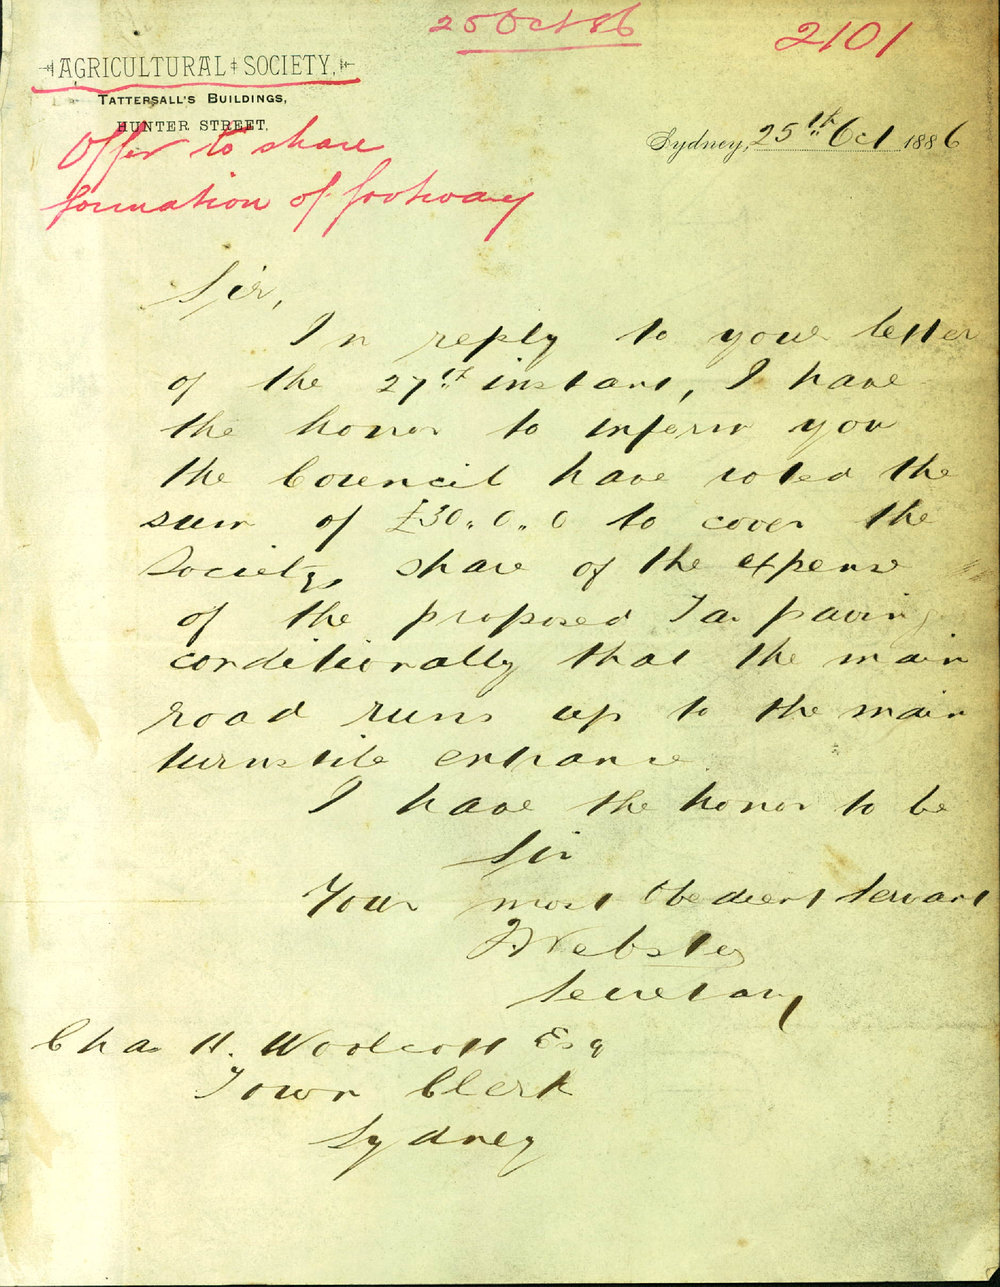 25 Oct 86
2101
AGRICULTURAL SOCIETY,
TATTERSALL'S BUILDINGS,
HUNTER STREET.
Offer to share
formation of footway
Sydney, 25th Oct 1886
Sir,
In reply to your letter
of the 27th instant, I have
the honor to inform you
the Council have voted the
sum of £30..0..0 to cover the
Societys share of the expense
of the proposed Tar paving
conditionally that the main
road runs up to the main
turnstile entrance.
I have the honor to be
Sir
Your most Obedient Servant
Webster
Secretary
Chas H. Woolcott Esq
Town Clerk
Sydney